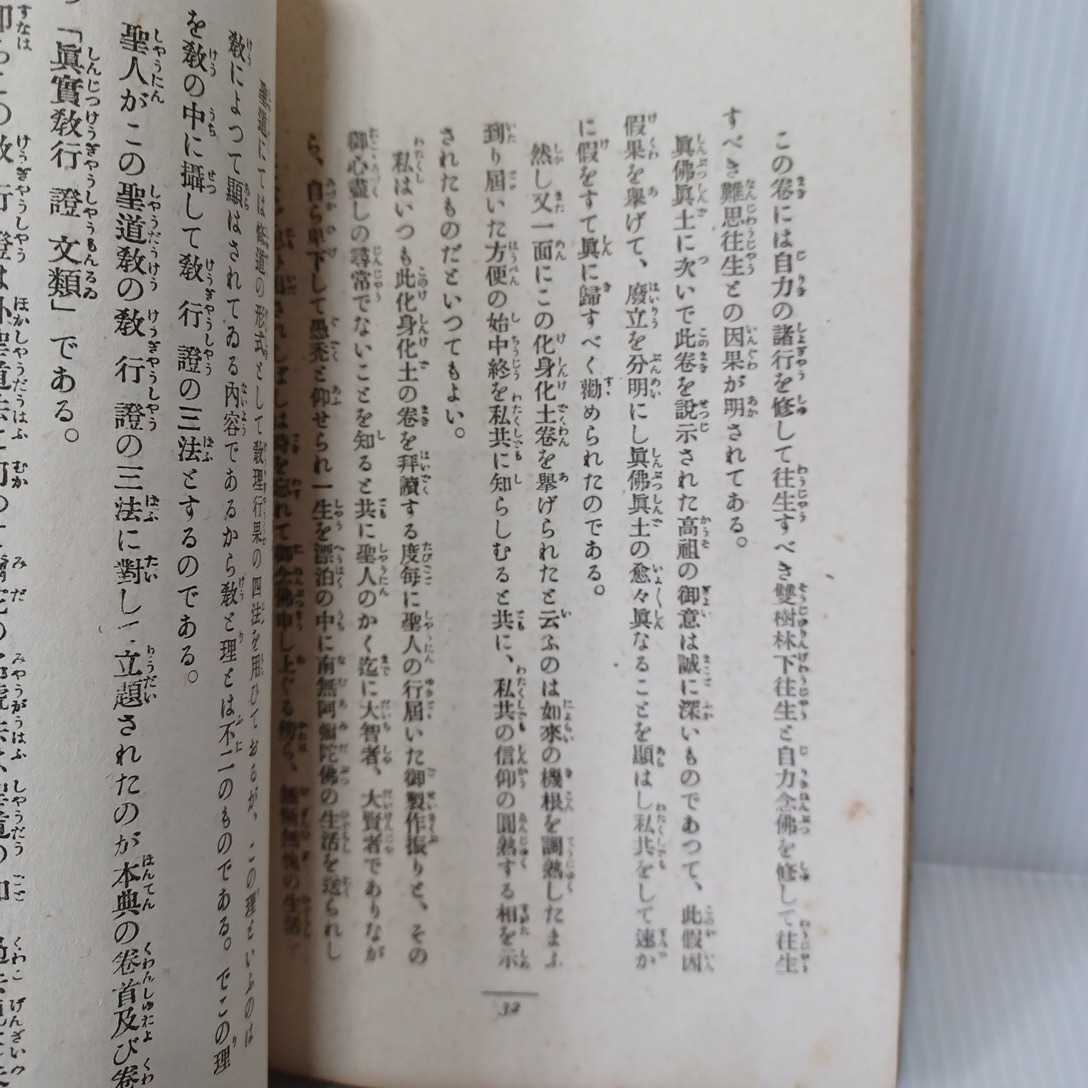 この卷には自力の諸行を修して往生すべき雙樹林下往生と自力念佛を修して往生
すべき難思往生との因果が明されてある。
眞佛眞土に次いで此卷を說示された高祖の御意は誠に深いものであつて、此假因
假果を擧げて、廢立を分明にし眞佛眞土の愈々眞なることを顯はし私共をして速か
に假をすて眞に歸すべく勸められたのである。
然し又一面にこの化身化土卷を擧げられたと云ふのは如來の機根を調熟したまふ
到り屆いた方便の始中終を私共に知らしむると共に、私共の信仰の圓熟する相を示
されたものだといつてもよい。
私はいつも此化身化土の卷を拜讀する度每に聖人の行屆いた御製作振りと、その
御心盡しの尋常でないことを知ると共に聖人のかく迄に大智者、大賢者でありなが
ら、自ら卑下して愚禿と仰せられ一生を漂泊の中に南無阿彌陀佛の生活を送られし
しばしは時を忘れて御念佛申し上ぐる
の生活
32
聖道にては修道の形式として敎理行果の四法を用ひておるが、この理といふのは
敎によつて顯はされてゐる內容であるから敎と理とは不二のものである。でこの理
を敎の中に攝して敎行證の三法とするのである。
聖人がこの聖道敎の敎行證の三法に對して立題されたのが本典の卷首及び卷
「眞實敎行證文類」である。